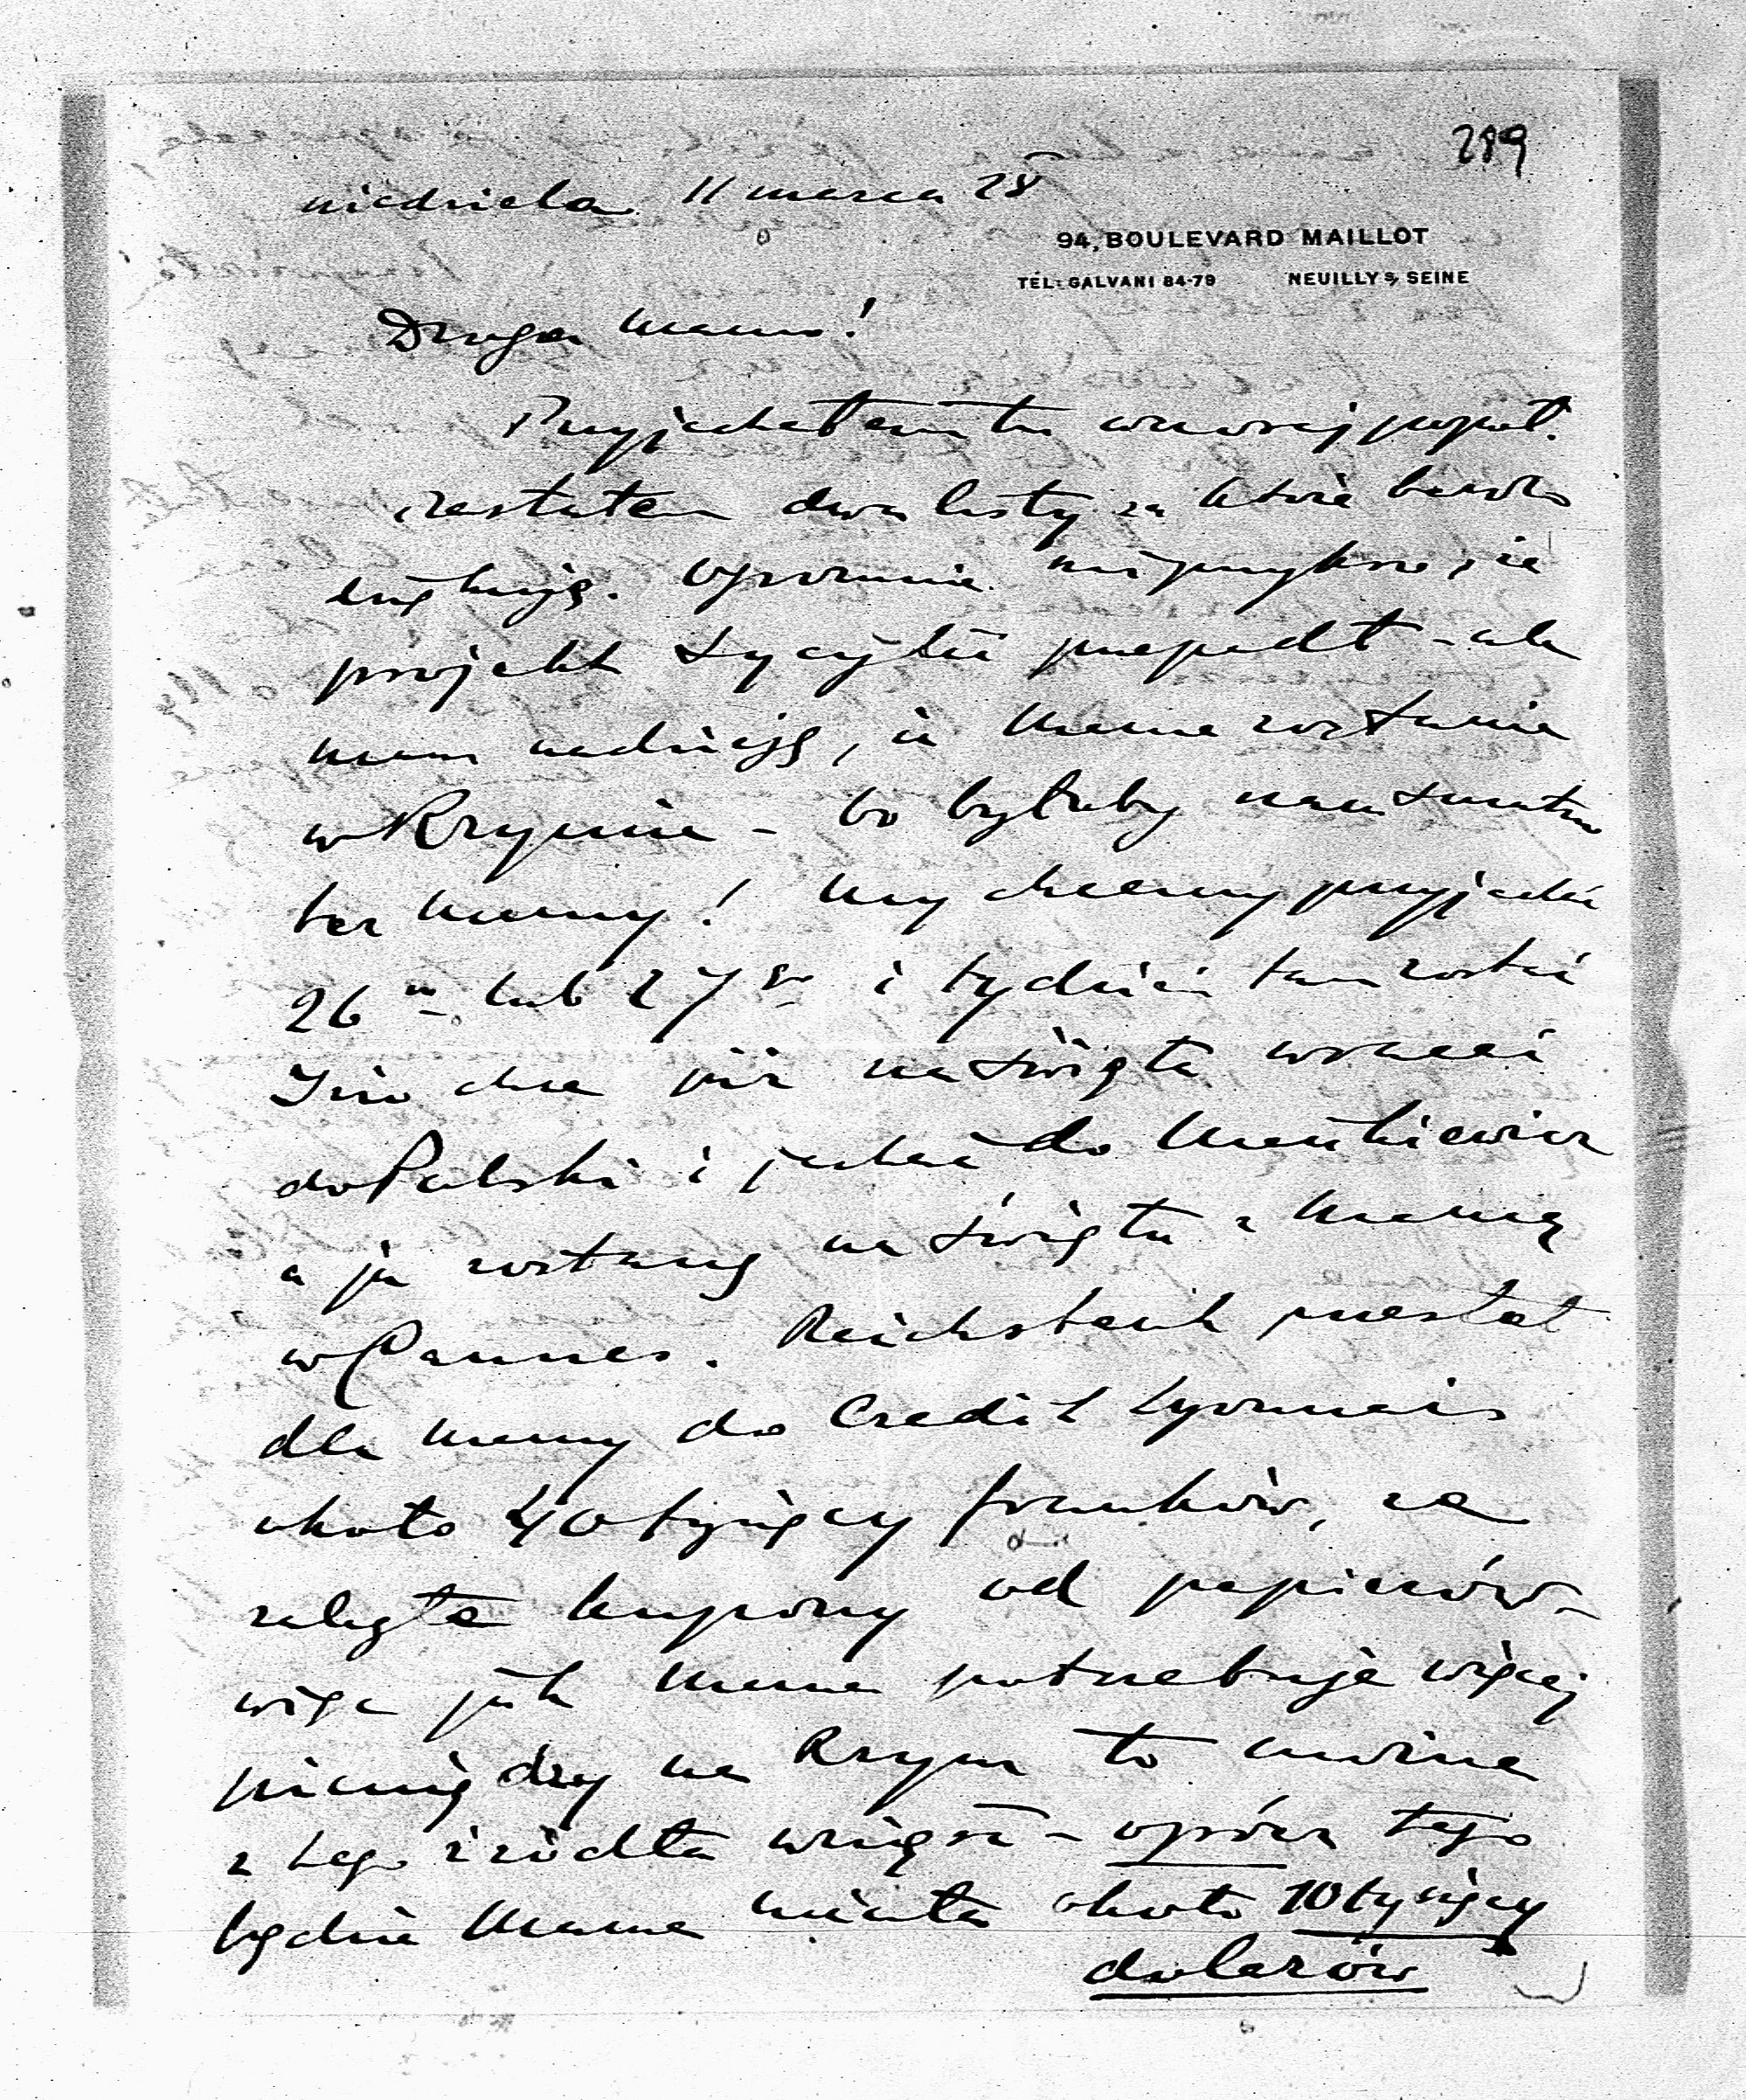 289
niedziela 11 marca 28
94, BOULEVARD MAILLOT
TÉL: GALVANI 84-79 NEUILLY S/ SEINE
Droga Mamo!
Przyjechałem tu wczoraj popoł.
zastałem dwa listy za które bardzo
dziękuję. Ogromnie mi przykro, że
projekt Sycylii przepadł - ale
mam nadzieję, że Mama zostanie
w Rzymie - bo byłoby nam smutno
bez Mamy! My chcemy przyjechać
26 lub 27 i tydzień tam zostać
chce już na Święta wracać
do Polski i jechać do
a ja zostanę na Święta z Mamą
w Cannes. Reichsbank przesłał
dla Mamy do Credit Lyonnais
około 40 tysięcy franków, za
zaległe kupony od papierów -
więc jak Mama potrzebuje więcej
pieniędzy na Rzym to można
z tego źródła wziąść - oprócz tego
będzie Mama miała około 10 tysięcy
dolarów